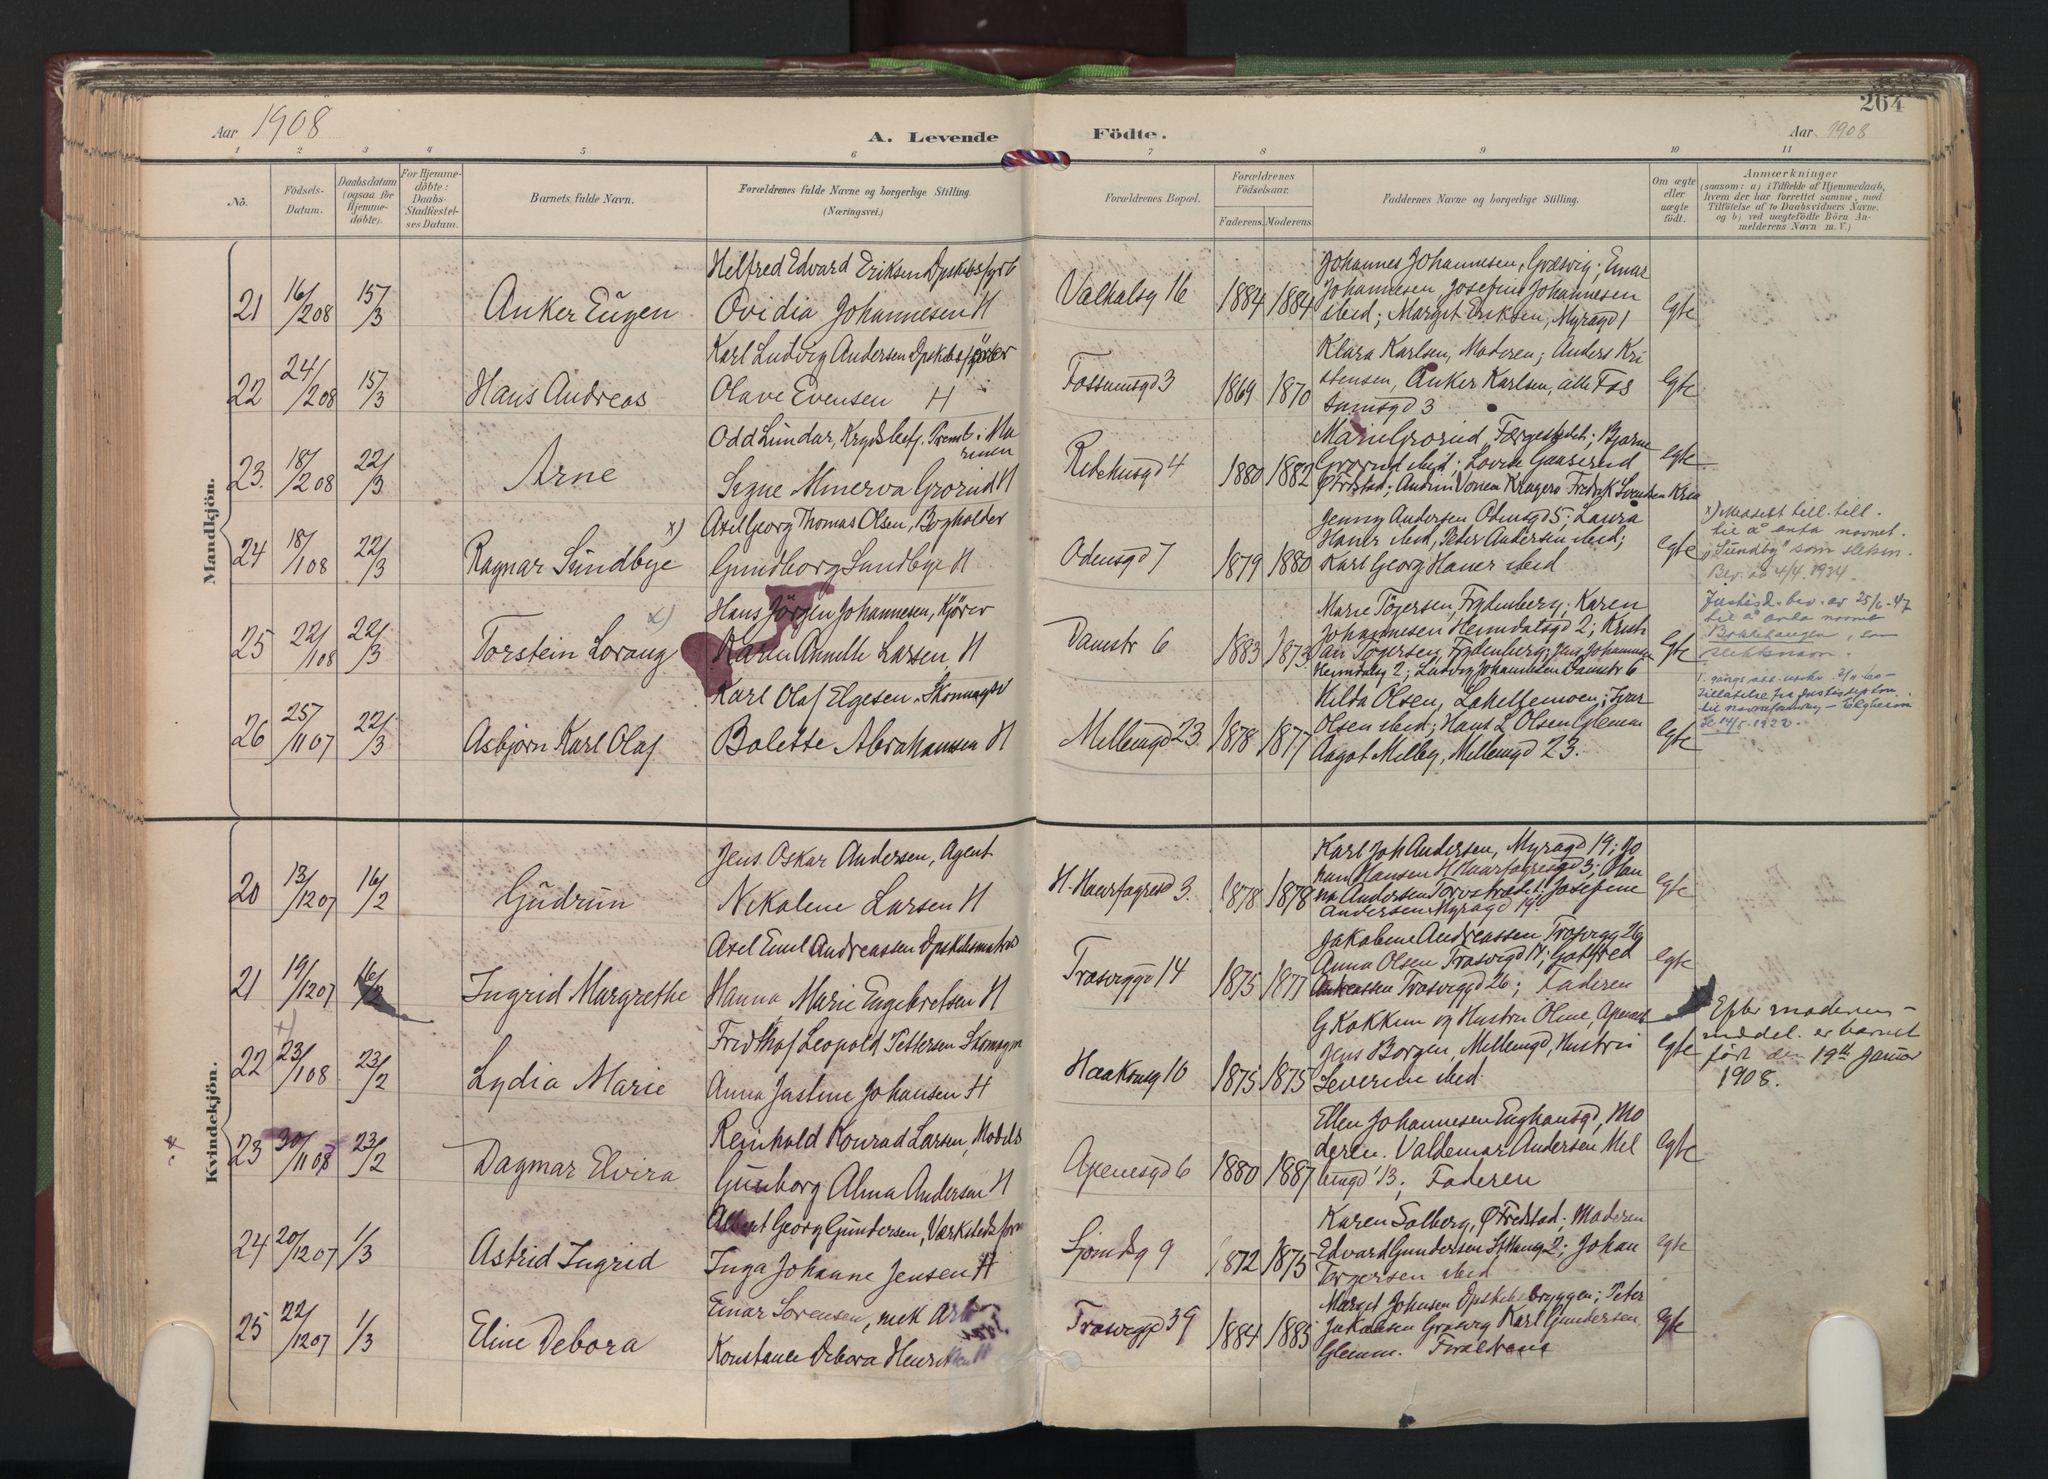 264
Aar 1908
A. Levende
Födte.
Aar 1908
1 2 3 4 5 6 7 8 9 10 11
No.
Födsels-
Datum.
Daabsdatum
(ogsaa for
Hjemme-
döbte).
For Hjemme-
döbte:
Daabs-
Stadfæstel-
ses Datum.
Barnets fulde Navn.
Forældrenes fulde Navne og borgerlige Stilling.
(Næringsvei.)
Forældrenes Bopæl.
Forældrenes
Födselsaar.
Faderens. Moderens.
Faddernes Navne og borgerlige Stilling.
Om ægte
eller
uægte
födt.
Anmærkninger
(saasom: a) i Tilfælde af Hjemmedaab,
hvem der har forrettet samme, med
Tilföielse af to Daabsvidners Navne,
og b) ved uægtefödte Börn An-
melderens Navn m. V.)
Mandkjön.
21 16/2 08 15/3 Anker Eugen
Helfred Edvard Eriksen
Ovidia Johannesen H
Valhalsg 16 1884 1884
Johannes Johannesen, Græsvig; Einar
Johannesen Josefine Johannesen
ibid; Margit Eriksen, Myragd 1
Egte
22 24/2 08 15/3 Hans Andreas
Karl Ludvig Andersen
Olave Evensen H
Fossumsgd 3 1869 1870
Klara Karlsen, Moderen; Anders Kri
stensen, Anker Karlsen, alle Fos
sumsgd 3
Egte
23 18/2 08 22/3 Arne
Odd Lundar,
Signe Minerva Grorud H
4 1880 1882
Marie Grorud, Færgestedet; Bjarne
Grorud ibid; Lovise
Egte
24 18/1 08 22/3 Ragnar Sundbye x)
Axel Georg Thomas Olsen, Bogholder
Gundborg Sundbye H
Odensgd 7 1879 1880
Jenny Andersen Odensgd 5; Laura
ibid, Peter Andersen ibid;
Karl Georg ibid
Egte
x) Meddelt till. till.
til å anta navnet
"Sundby" som slektsn.
Bev. av 4/4. 1934.
25 22/1 08 22/3 Torstein Lorang x)
Hans Jörgen Johannesen, Kjörer
Karen Annette Larsen, H
Damstr 6 1883 1873
Marie Tögersen, Frydenberg; Karen
Johannesen Heimdalsgd 2; Krist
ian Togersen, Frydenberg; Jens Johannesen
Heimdalsg 2; Ludvig Johannesen Damstr 6
Egte
Justisd. bev. av 25/6-47
til å anta navnet
som
slektsnavn.
26 25/11 07 22/3 Asbjörn Karl Olaf
Karl Olaf Elgesen, Skomager
Bolette Abrahamsen H
Mellemgd 23 1878 1877
Hilda Olsen, Ivar
Olsen ibid; Hans L Olsen Glemm
Aagot Melby, Mellemgd 23.
Egte
Kvindekjön.
20 13/12 07 16/2 Gudrun
Jens Oskar Andersen, Agent
Nikoline Larsen H
H. Haarfagresgd 3. 1878 1878
Karl Joh Andersen, Myragd 19; Jo
han Hansen H Haarfagresgd 3; Han
na Andersen Torvstrædet; Josefine
Andersen Myragd 19.
Egte
21 19/12 07 16/2 Ingrid Margrethe
Axel Emil Andreassen
Hanna Marie Engebretsen H
Trosviggd 14 1875 1877
Jakobine Andreassen Trosvigg 26
Anna Olsen Trosvigd 14; Gotfred
Andreassen Trosviggd 26; Faderen
Egte
22 x) 23/1 08 23/2 Lydia Marie
Fridthof Leopold Pettersen Skomagm
Anna Justine Johansen H
Haakonsg 10 1875 1875
G Kokkim og Hustru Oline,
Jens Borgen, Mellemgd, Hustru
Severine ibid
Egte
Efter moderens
meddel. er barnet
født den 19de Januar
1908.
23 30/11 08 23/2 Dagmar Elvira
Reinhold Konrad Larsen,
Gunborg Alma Andersen H
Apenesgd 6 1880 1887
Ellen Johannesen Enghausgd, Mo
deren. Valdemar Andersen Mel
lemgd 13; Faderen
Egte
24 20/12 07 1/3 Astrid Ingrid
Albert Georg Gundersen,
Inga Johanne Jensen H
9 1872 1875
Karen Solberg, Ø Fredstad; Moderen
Edvard Gundersen St Hansg 2; Johan
Torgersen ibid
Egte
25 22/12 07 1/3 Eline Debora
Einar Sörensen, mek Arb
Konstance Debora H
Trosviggd 39 1884 1885
Margit Johnsen Peter
Jakobsen Græsvig Karl Gundersen
Glemm.
Egte